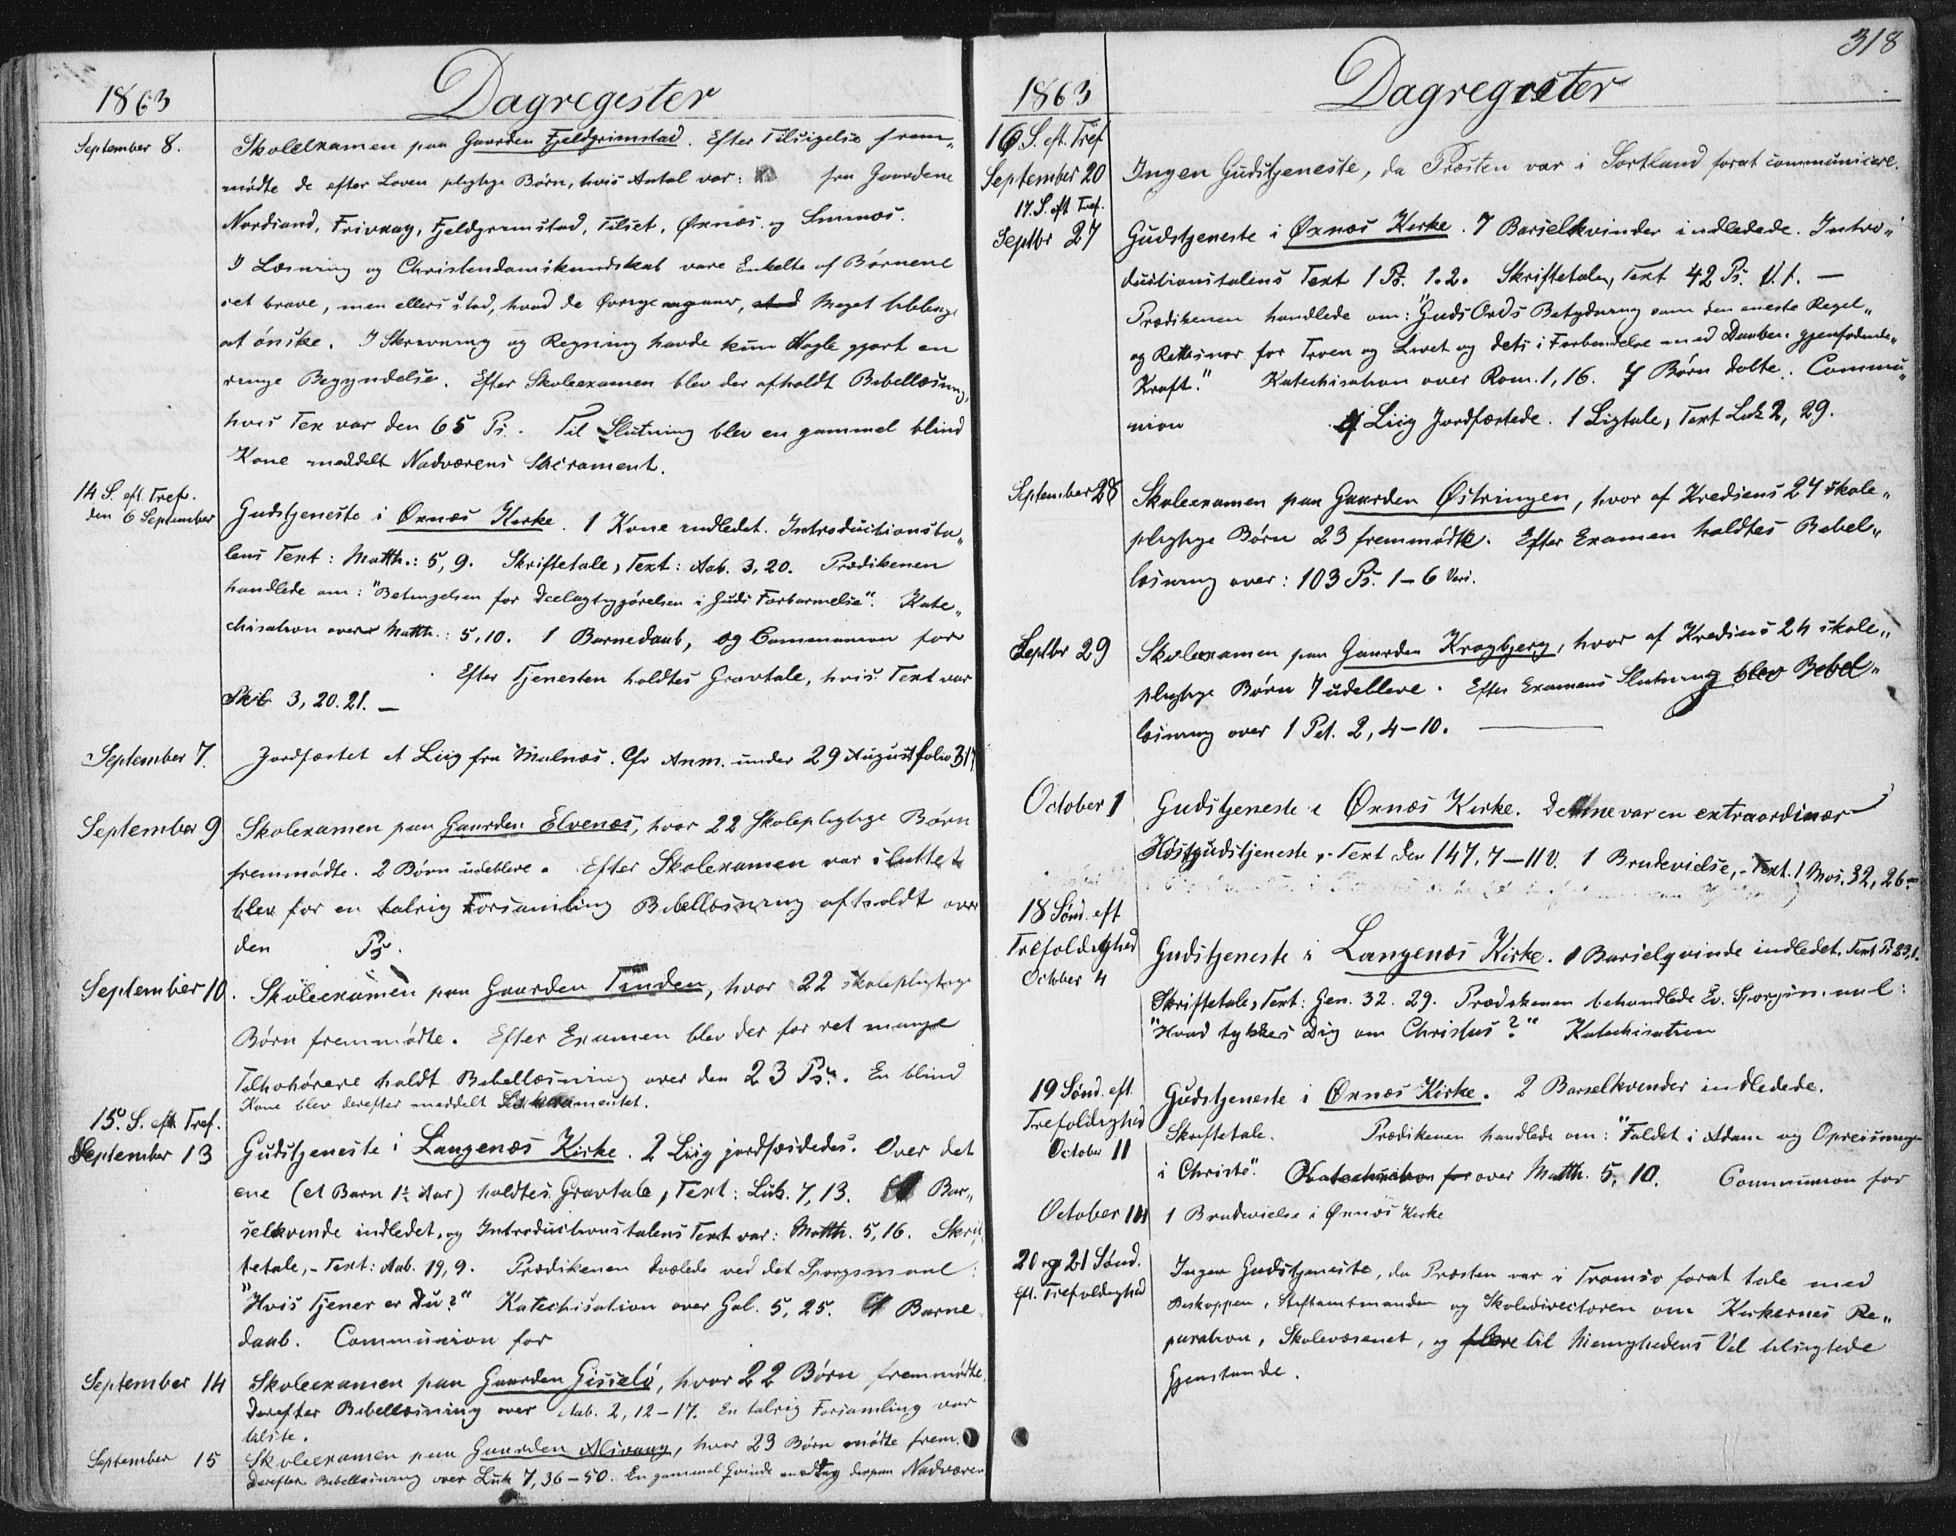 1863
Dagregister
September 8.
Skoleexamen paa Gaarden Fjeldgrimstad. Efter Tilsigelse frem-
mødte de efter Loven pligtige Børn, hvis Antal var: fra Gaardene
Nordsand, Frivaag, Fjeldgrimstad, Tilset, Øxnæs og Smines.
I Læsning og Christendomskundskab vare Enkelte af Børnene
ret brave, men ellers stod, hvad de Øvrige angaaer, Meget tilbage
at ønske. I Skrivning og Regning havde kun Nogle gjort en
ringe Begyndelse. Efter Skoleexamen blev der afholdt Bibellæsning,
hvis Tex var den 65 Ps. Til Slutning blev en gammel blind
Kone meddelt Nadverens Sacrament.
14 S. eft. Tref.
den 6 September
Gudstjeneste i Øxnæs Kirke. 1 Kone indledet. Introductionsta-
lens Text: Matth.: 5,9. Skriftetale, Text: Aab. 3,20. Prædikenen
handlede om: "Betingelsen for Deelagtiggjørelsen i Guds Forbarmelse". Kate-
chisation over Matth.: 5,10. 1 Barnedaab, og Communion for
Efter Tjenesten holdtes Gravtale, hvis Text var
3,20.21. —
September 7.
Jordfæstet et Liig fra Malnæs. Cfr Anm. under 29 August folio 317
September 9
Skolexamen paa Gaarden Elvenæs, hvor 22 Skolepligtige Børn
fremmødte. 2 Børn udebleve. Efter Skolexamen var sluttet
blev for en talrig Forsamling Bibellæsning afholdt over
den Ps.
September 10.
Skoleexamen paa Gaarden Tinden, hvor 22 skolepligtige
Børn fremmødte. Efter Examen blev der for ret mange
Tilhohørere holdt Bibellæsning over den 23 Ps. En blind
Kone blev derefter meddelt Sakramentet.
15. S. eft. Tref.
September 13
Gudstjeneste i Langenæs Kirke. 2 Liig jordfæstedes. Over det
ene (et Barn 1½ Aar) holdtes Gravtale, Text: Luk. 7,13. 1 Bar-
selkvinde indledet, og Introductionstalens Text var: Matth. 5,16. Skrif-
tetale, - Text: Aab. 19,9. Prædikenen dvælede ved det Spørgsmaal:
"Hvis Tjener er Du?" Katechisation over Gal. 5,25. 1 Barne
daab. Communion for
September 14
Skoleexamen paa Gaarden Gisselø, hvor 22 Børn fremmødte.
Derefter Bibellæsning over Aab. 2, 12-17. En talrig Forsamling var
tilste.
September 15
Skoleexamen paa Gaarden Alsvaag, hvor 23 Børn mødte frem.
Derefter Bibellæsning over Luk 7,36-50. En gammel Qvinde modtog derpaa Nadveren
318
1863
Dagregister
16 S. eft. Tref
September 20
Ingen Gudstjeneste, da Præsten var i Sortland forat communicere.
17. S. eft Tref.
Septbr 27
Gudstjeneste i Øxnæs Kirke. 7 Barselkvinder indledede. Intro-
ductionstalens Text 1 Ps. 1.2. Skriftetalen, Text 42 Ps. V.1. —
Prædikenen handlede om: "Guds Ords Betydning som den eneste Regel-
og Rettesnor for Troen og Livet og dets i Forbindelse med Daaben gjenfødende-
Kraft." Katechisation over Rom. 1,16. 7 Børn døbte. Commu-
nion Liig Jordfæstede. 1 Ligtale, Text Luk 2, 29.
September 28
Skoleexamen paa Gaarden Østringen, hvor af Kredsens 27 skole-
pligtige Børn 23 fremmødte. Efter Examen holdtes Bibel-
læsning over: 103 Ps. 1-6 Vers.
Septbr 29
Skolexamen paa Gaarden Kragbjerg, hvor af Kredsens 24 skole-
pligtige Børn 7 udebleve. Efter Examens Slutning blev Bibel-
læsning over 1 Pet. 2, 4-10. —
October 1
Gudstjeneste i Øxnæs Kirke. Denne var en extraordinær
Høstgudstjeneste, - Text den 147, 7-11 V. 1 Brudevielse, - Text. 1 Mos. 32, 26.
18 Sønd. eft
Trefoldighed
October 4
Gudstjeneste i Langenæs Kirke. 1 Barselqvinde indledet. Text Ps 23,1.
Skriftetale, Text: Gen. 32. 29. Prædikenen behandlede Ev. Spørgsmaal:
"Hvad tykkes Dig om Christus?" Katechisation
19 Sønd. eft
Trefoldighed
October 11
Gudstjeneste i Øxnæs Kirke. 2 Barselkvinder indledede.
Skriftetale. Prædikenen handlede om: "Faldet i Adam og Opreisningen
i Christo". Katechisation for over Matth. 5, 10. Communion for
October 14
1 Brudevielse i Øxnæs Kirke
20 og 21 Sønd.
eft. Trefoldighed
Ingen Gudstjeneste, da Præsten var i Tromsø forat tale med
Biskoppen, Stiftamtmanden og Skoledirectoren om Kirkernes Re-
paration, Skolevæsenet, og flere til Menighedens Vel tilsigtede
Gjenstande.